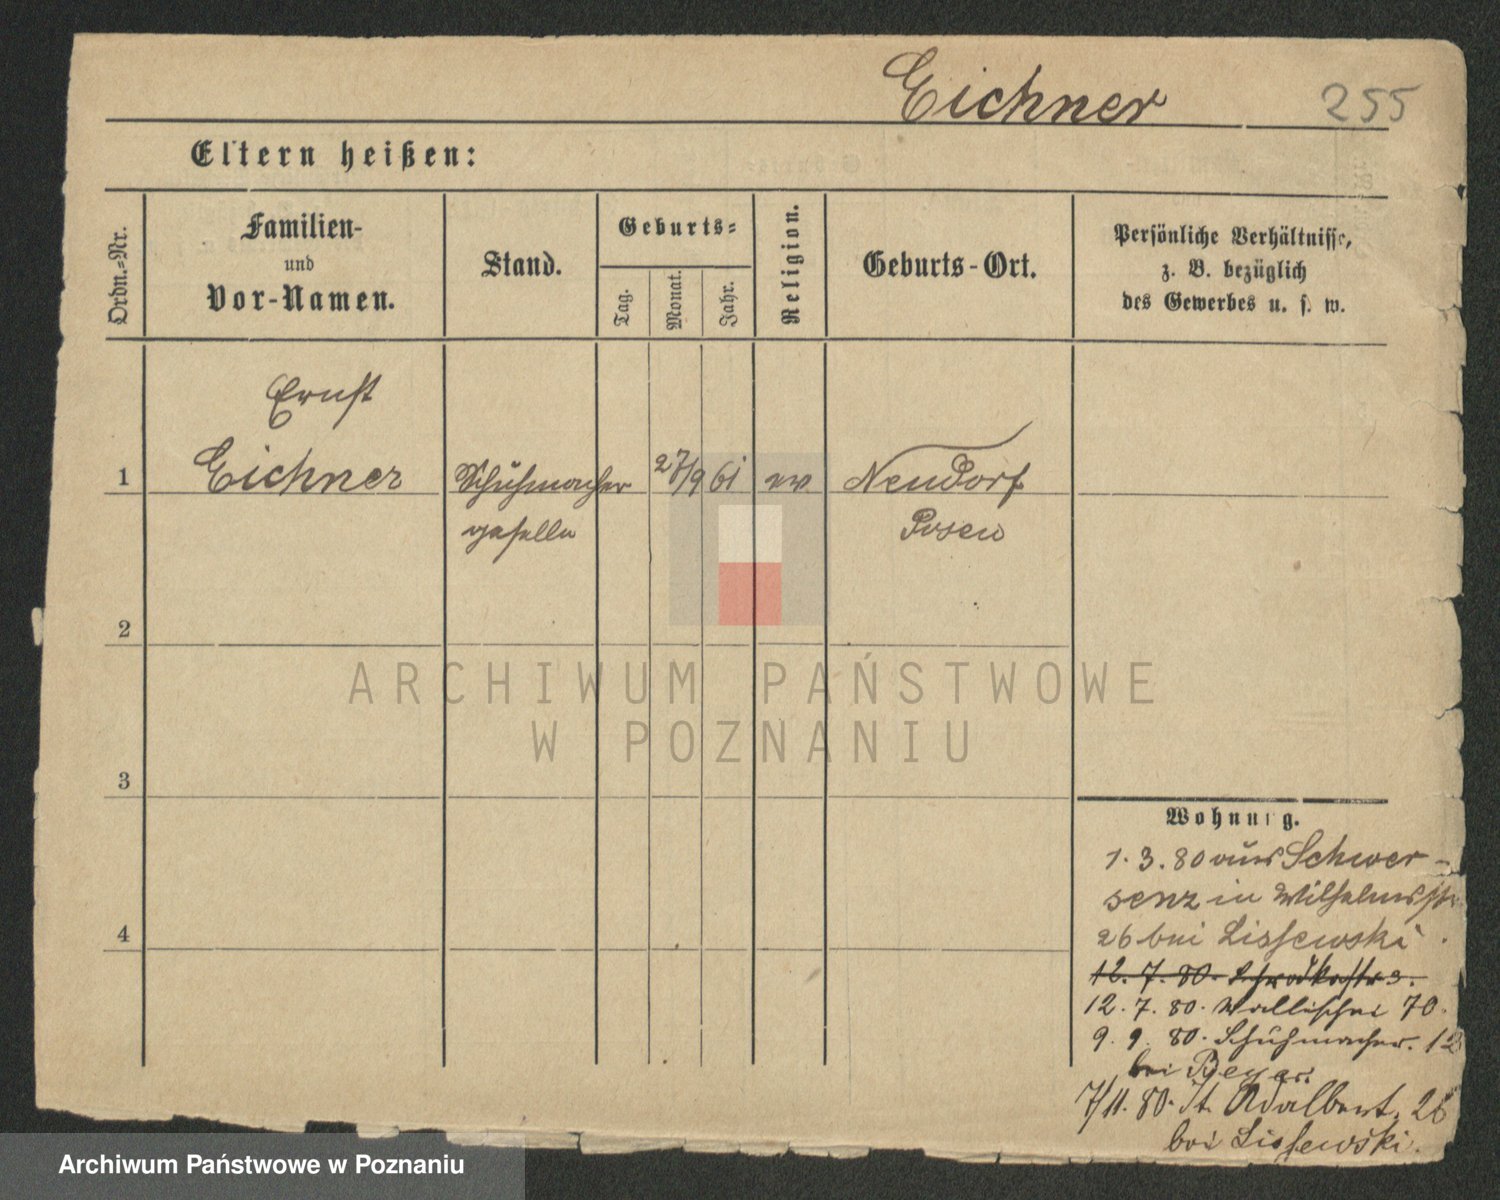 Eichner 255
Eltern heißen:
Ordn.-Nr.
Familien-
und
Vor-Namen.
Stand.
Geburts-
Tag.
Monat.
Jahr.
Religion.
Geburts-Ort.
Persönliche Verhältnisse,
z. B. bezüglich
des Gewerbes u. s. w.
Ernst
1 Eichner Schuhmacher 27/9 61 ev Neudorf
geselle Posen
2
3
4
ARCHIWUM PAŃSTWOWE
W POZNANIU
Wohnung.
1. 3. 80 aus Schwer-
senz in Wilhelmsstr
26 bei Lissewski
12. 7. 80. Schrodkastr 3.
12. 7. 80. Wallischei 70.
9. 9. 80. Schuhmacher. 12
bei Beyer.
7/11. 80. St. Adalbert. 26
bei Lissewski.
Archiwum Państwowe w Poznaniu